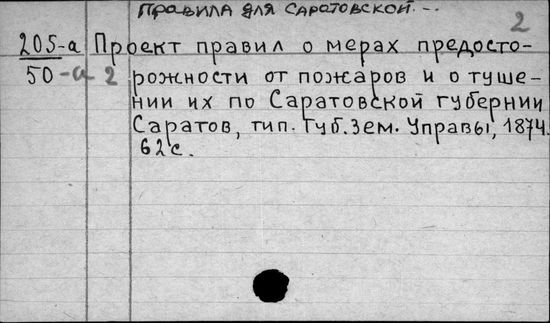 Правила для Саратовской...
2
205-а Проект правил о мерах предосто-
50-а 2 рожности от пожаров и о туше-
нии их по Саратовской губернии
Саратов, тип. Губ. Зем. Управы, 1874.
62 с.